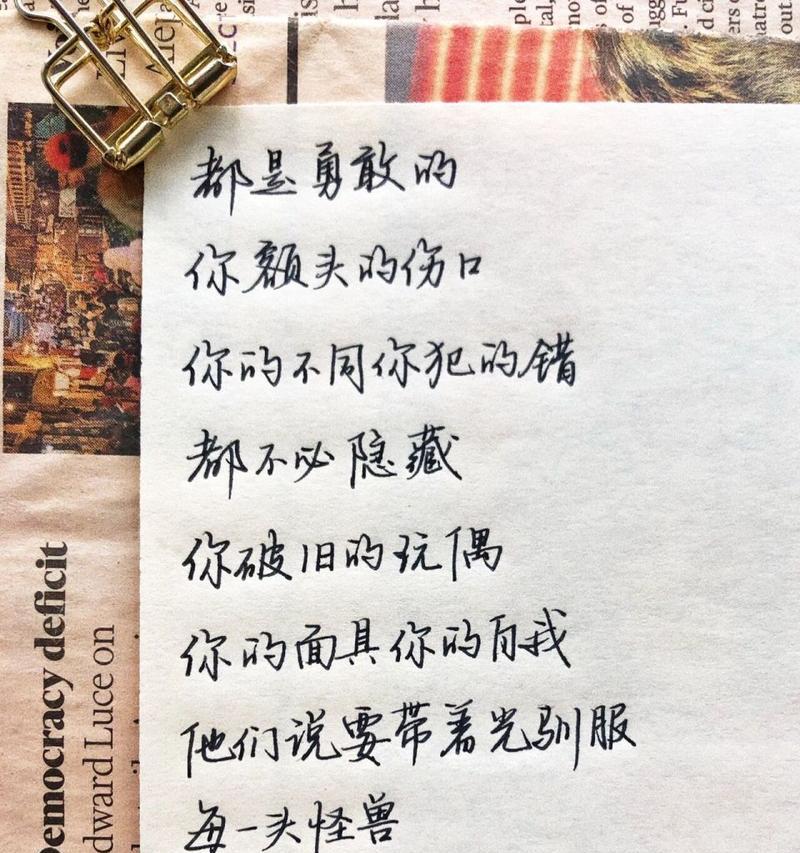 都是勇敢的
你额头的伤口
你的不同你犯的错
都不必隐藏
你破旧的玩偶
你的面具你的自我
他们说要带着光驯服
每一头怪兽
Democracy deficit
dward Luce on